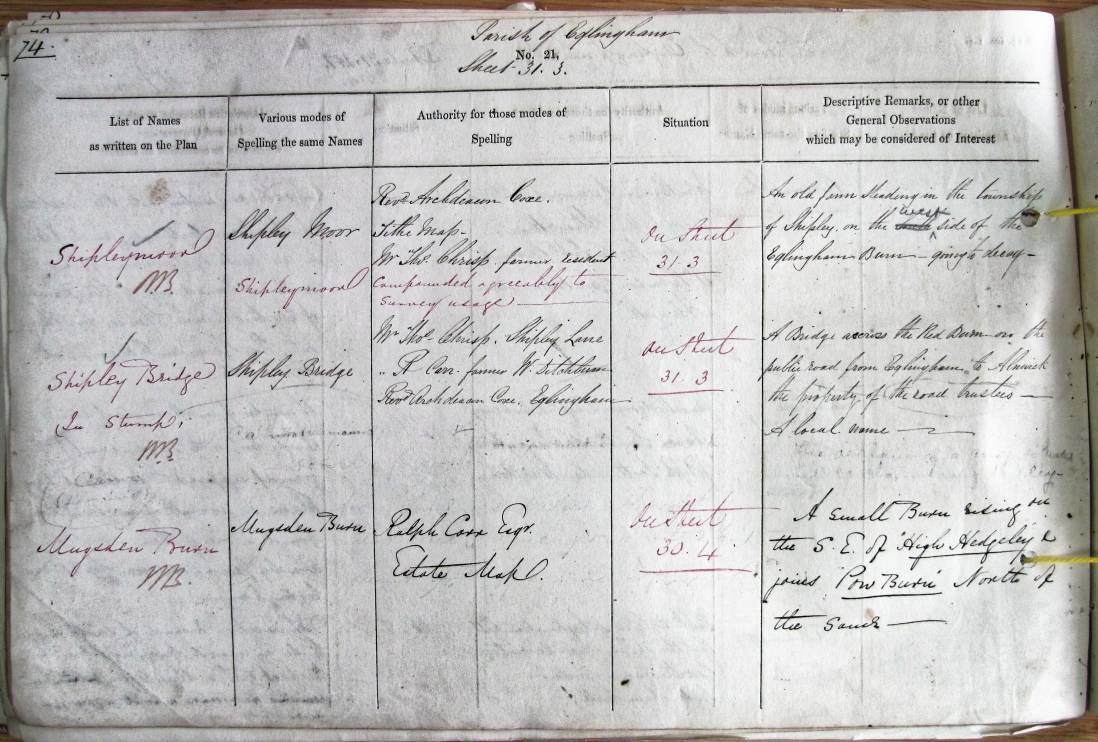 74.
Parish of Eglingham
No. 21,
Sheet 31. 3.
List of Names
as written on the Plan
Various modes of
Spelling the same Names
Authority for those modes of
Spelling
Situation
Descriptive Remarks, or other
General Observations
which may be considered of Interest
Shipleymoor
MB
Shipley Moor
Shipleymoor
Revd. Archdeacon Coxe.
Tithe Map
Mr Thos. Chrisp. former resident
Compounded agreeably to
Survey usage
On Sheet
31 3
An old farm Steading in the township
of Shipley, on the west side of the
Eglingham Burn - going to decay -
Shipley Bridge
In Stump;
MB
Shipley Bridge
Mr Thos. Chrisp. Shipley Lane
" R Carr. former W. Ditchburn
Revd. Archdeacon Coxe. Eglingham
On Sheet
31 3
A Bridge across the Red Burn on the
public road from Eglingham to Alnwick
the property of the road trustees
A local name
Mugsden Burn
MB.
Mugsden Burn
Ralph Carr Esqr.
Estate Map.
On Sheet
30. 4
A small Burn rising on
the S. E. of High Hedgeley &
joins Pow Burn North of
the same